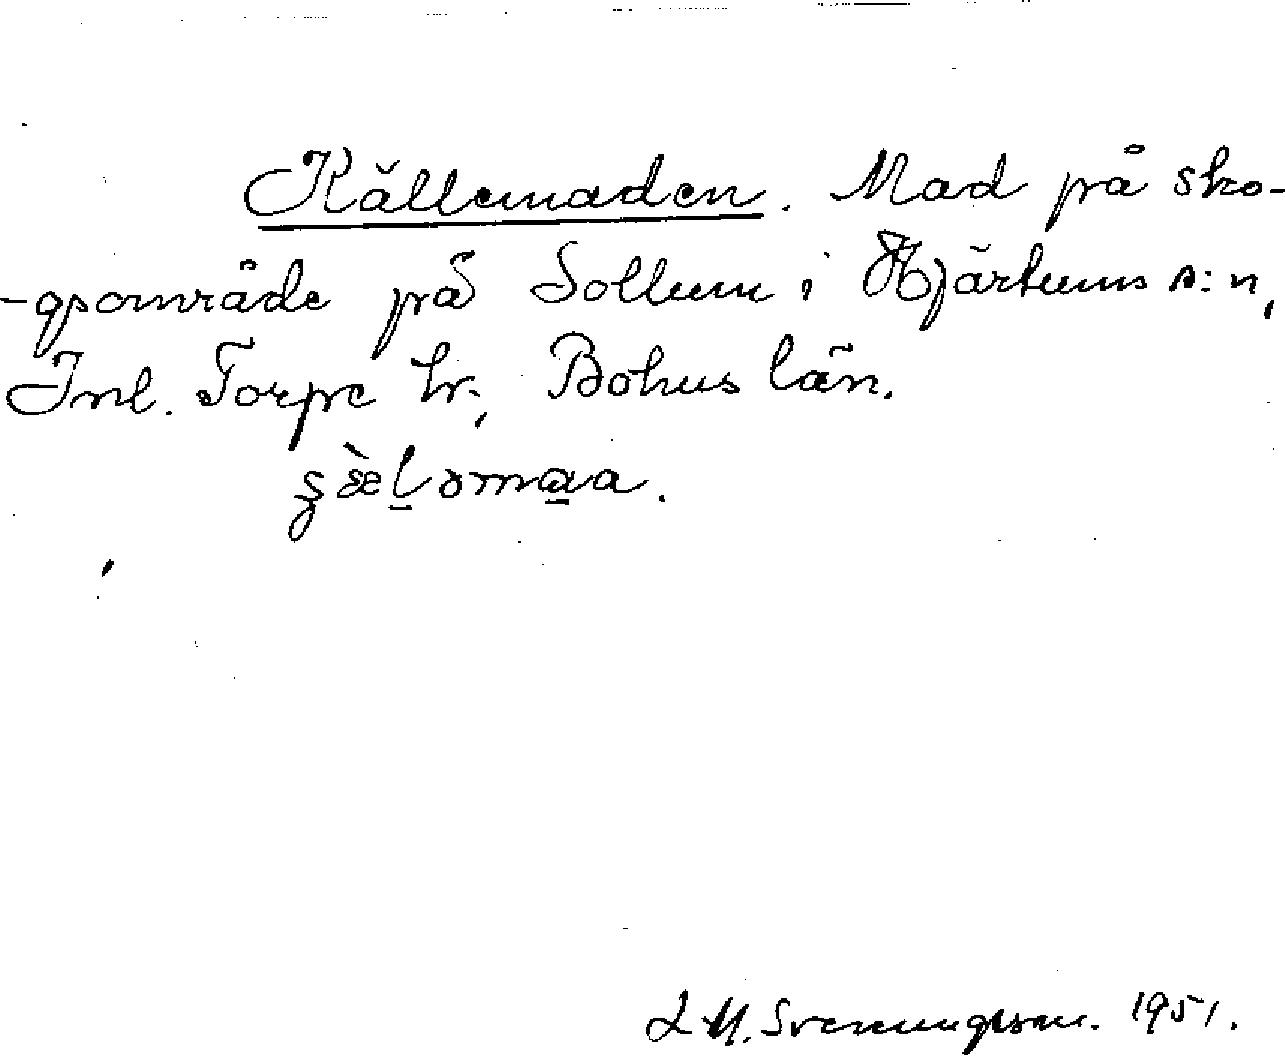 Källemaden. Mad på sko-
-gsområde på Sollum i Hjärtums s:n,
Inl. Torpe hr., Bohus län.
L M. Svenungsson. 1951.